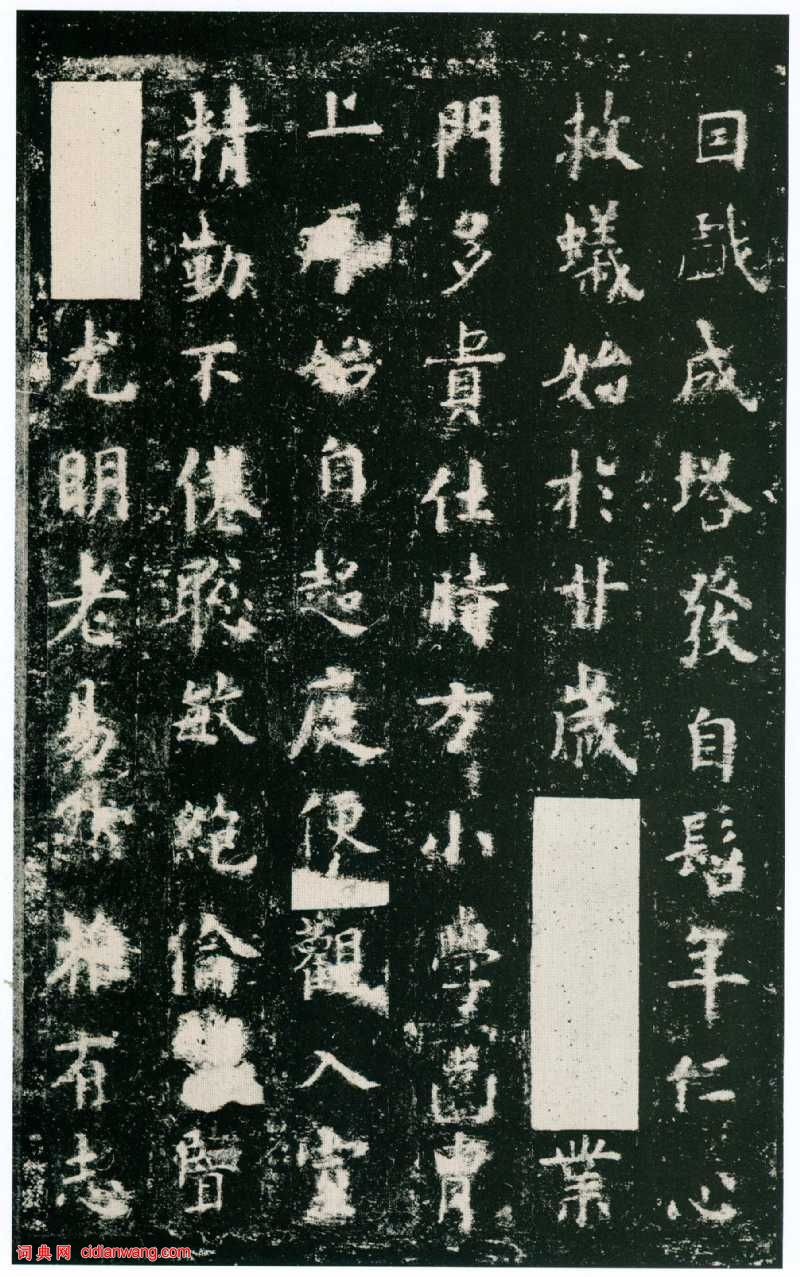 囙戲成塔發自髫年仁心
救蟻始於廿歲業
門多貴仕時方小學齒胄
上庠始自趍庭便觀入室
精勤不倦聡敏絶倫醫
尤明老易然雅有志
词典网 cidianwang.com